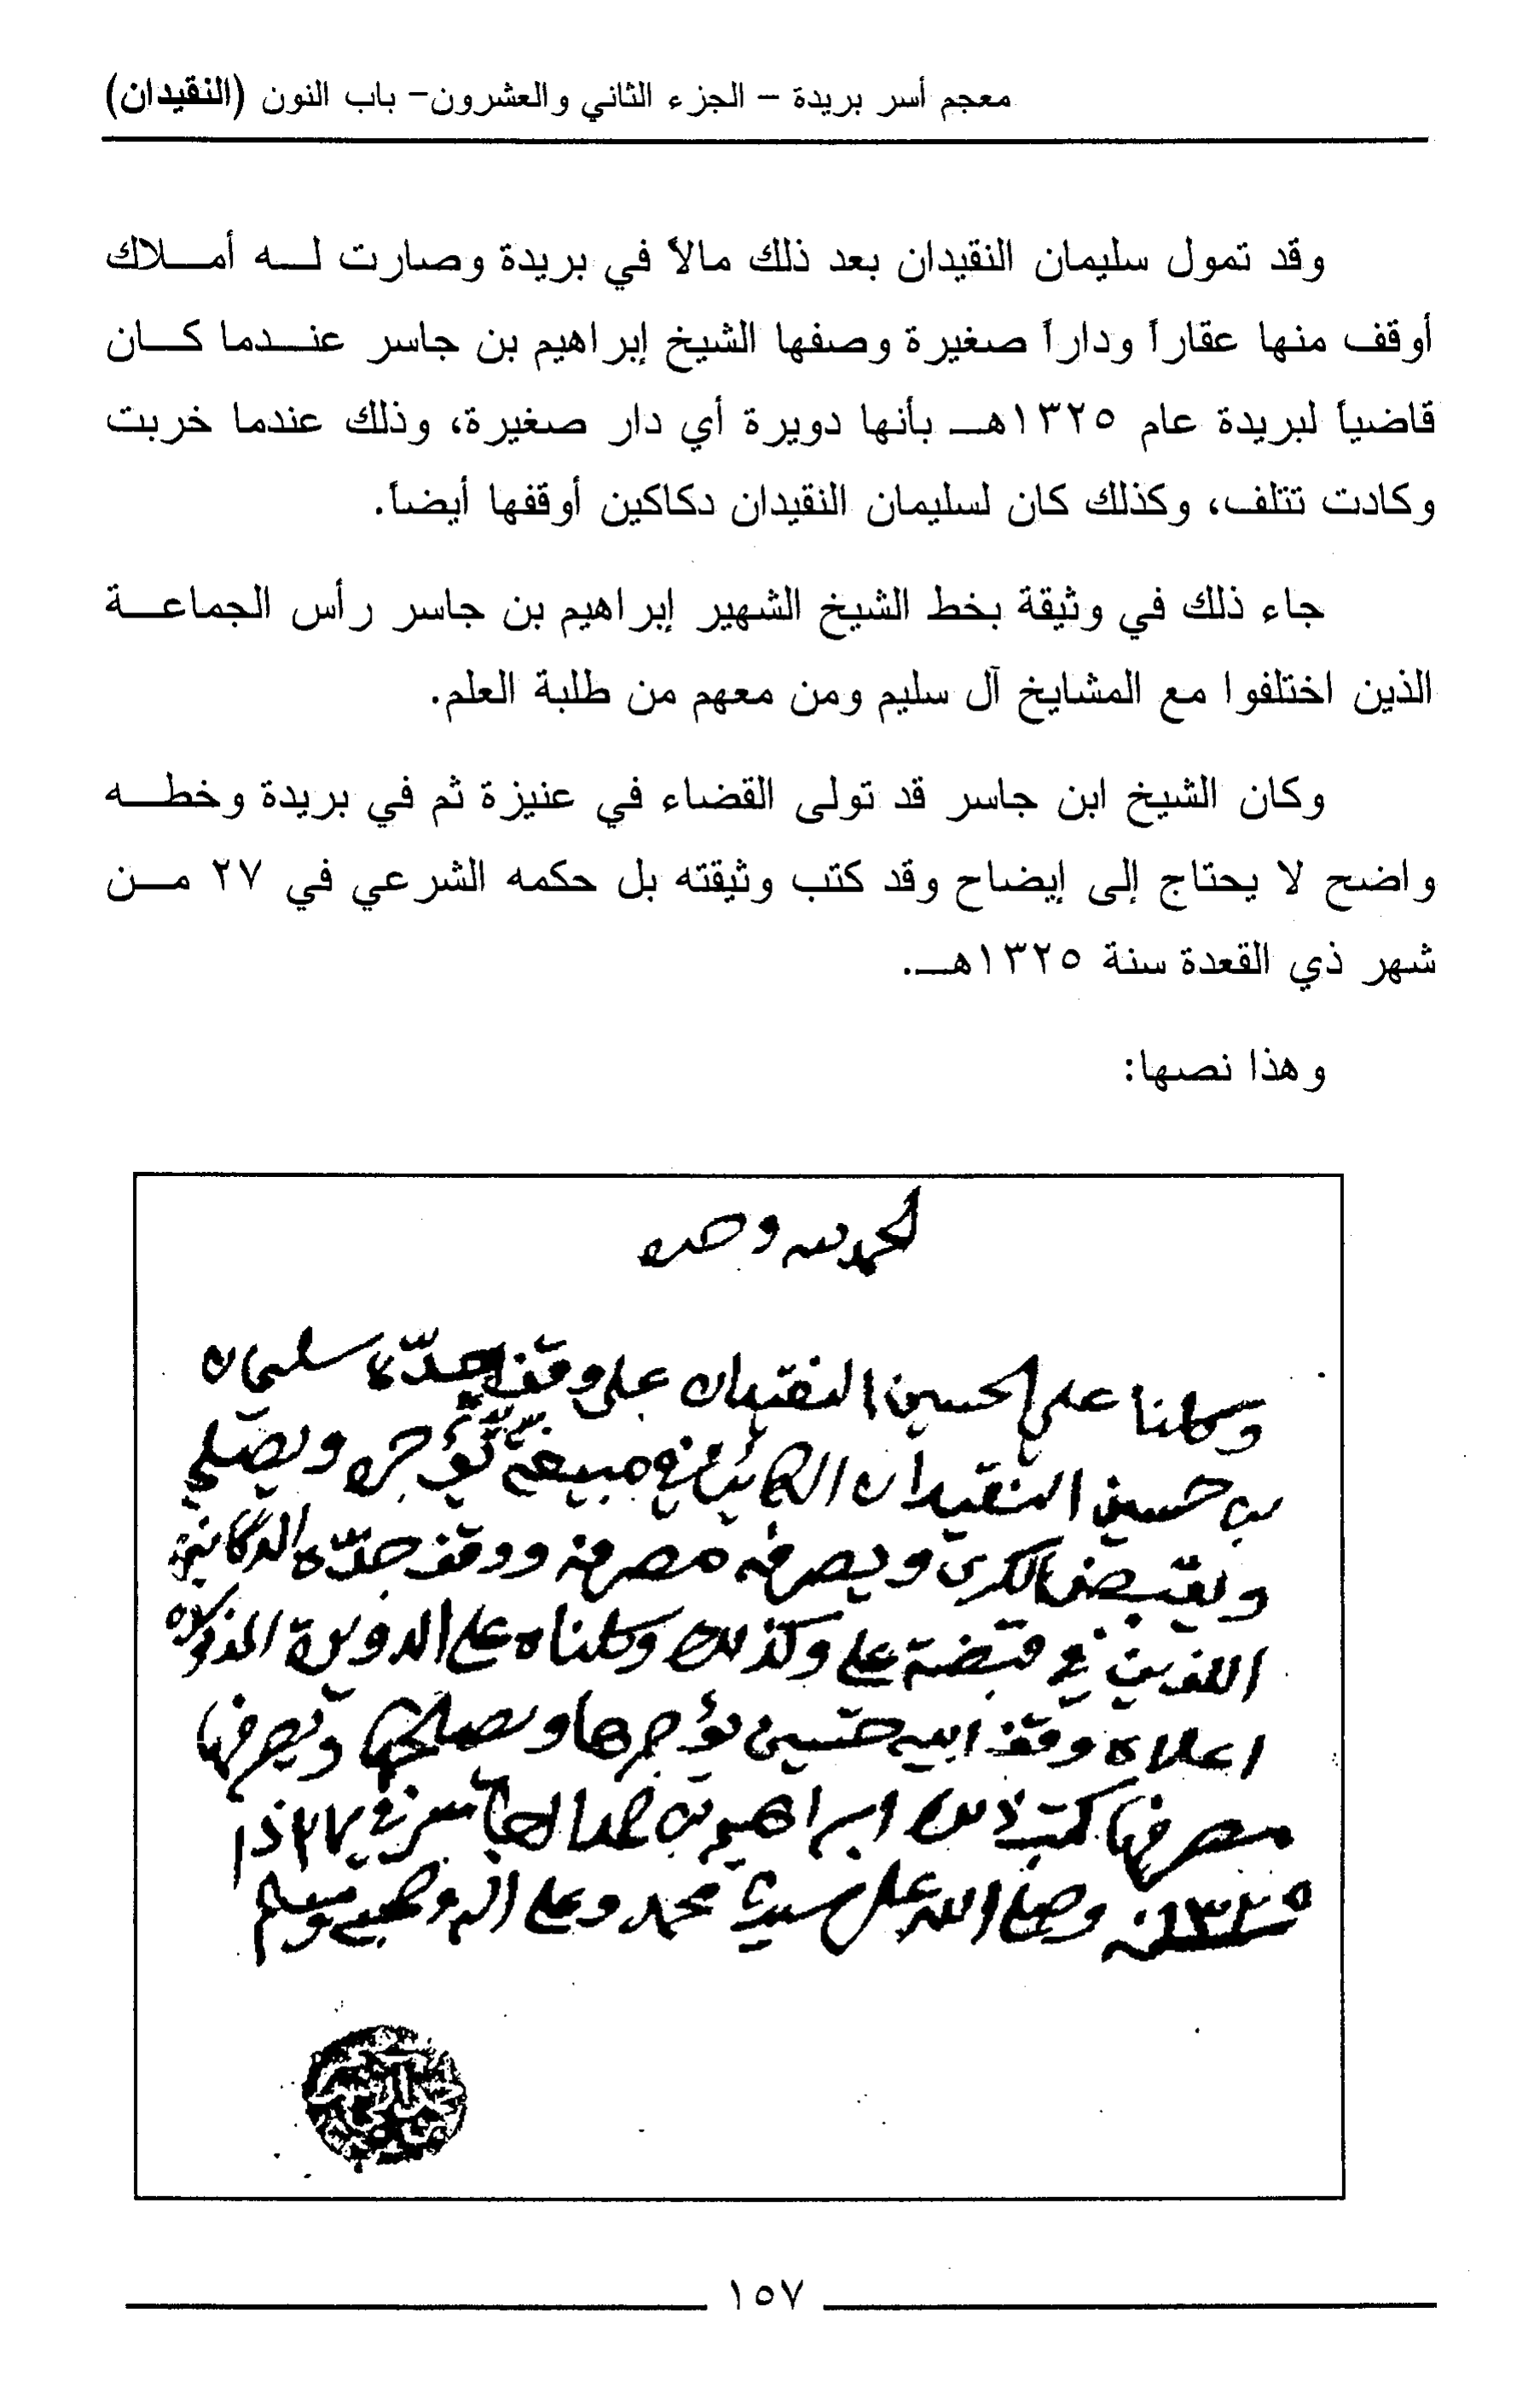 معجم أسر بريدة – الجزء الثاني والعشرون– باب النون (النقيدان)
وقد تمول سليمان النقيدان بعد ذلك مالاً في بريدة وصارت لـه أمـلاك
أوقف منها عقاراً وداراً صغيرة وصفها الشيخ إبراهيم بن جاسر عنـدما كـان
قاضياً لبريدة عام ١٣٢٥هـ بأنها دويرة أي دار صغيرة، وذلك عندما خربت
وكادت تتلف، وكذلك كان لسليمان النقيدان دكاكين أوقفها أيضاً.
جاء ذلك في وثيقة بخط الشيخ الشهير إبراهيم بن جاسر رأس الجماعـة
الذين اختلفوا مع المشايخ آل سليم ومن معهم من طلبة العلم.
وكان الشيخ ابن جاسر قد تولى القضاء في عنيزة ثم في بريدة وخطـه
واضح لا يحتاج إلى إيضاح وقد كتب وثيقته بل حكمه الشرعي في ٢٧ مـن
شهر ذي القعدة سنة ١٣٢٥هـ.
وهذا نصها:
الحمد لله وحده
وكلنا علي الحسين النقيدان على وقف جده سليمان
بن حسين النقيدان الكاين في مبيعة يؤجره ويصلي
ويقبض الكرى ويصرفه مصرفه ووقف جده الدكانين
اللذين في قبضة علي وكذلك وكلناه على الدويرة المذكوره
اعلاه وقف ابيه حسين يؤجرها ويصلحها ويصرفها
مصرفها كتب ذلك ابراهيم بن حمد الجاسر في ٢٧ ذا
١٣٢٥ سنة وصلى الله على سيدنا محمد وعلى اله وصحبه وسلم
١٥٧